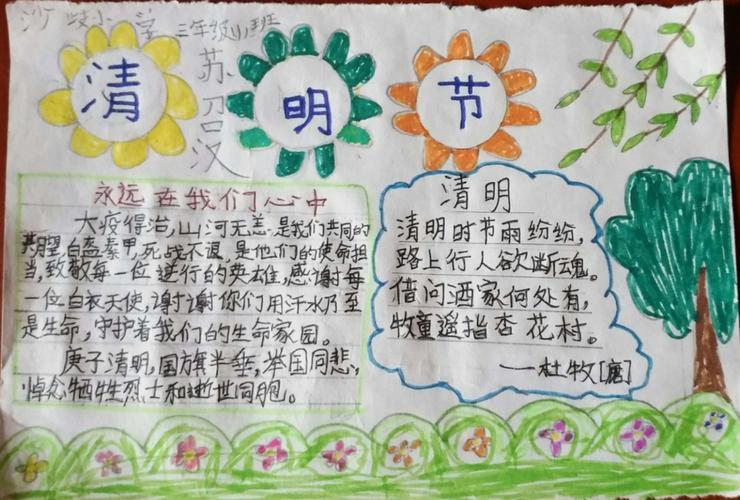 沙岐小学 三年级(1)班
苏召汉
清明节
永远在我们心中
大疫得治,山河无恙,是我们共同的
期望,白盔素甲,死战不退,是他们的使命担
当,致敬每一位逆行的英雄,感谢每
一位白衣天使,谢谢你们用汗水乃至
是生命,守护着我们的生命家园。
庚子清明,国旗半垂,举国同悲,
悼念牺牲烈士和逝世同胞。
清明
清明时节雨纷纷,
路上行人欲断魂。
借问酒家何处有,
牧童遥指杏花村。
——杜牧[唐]